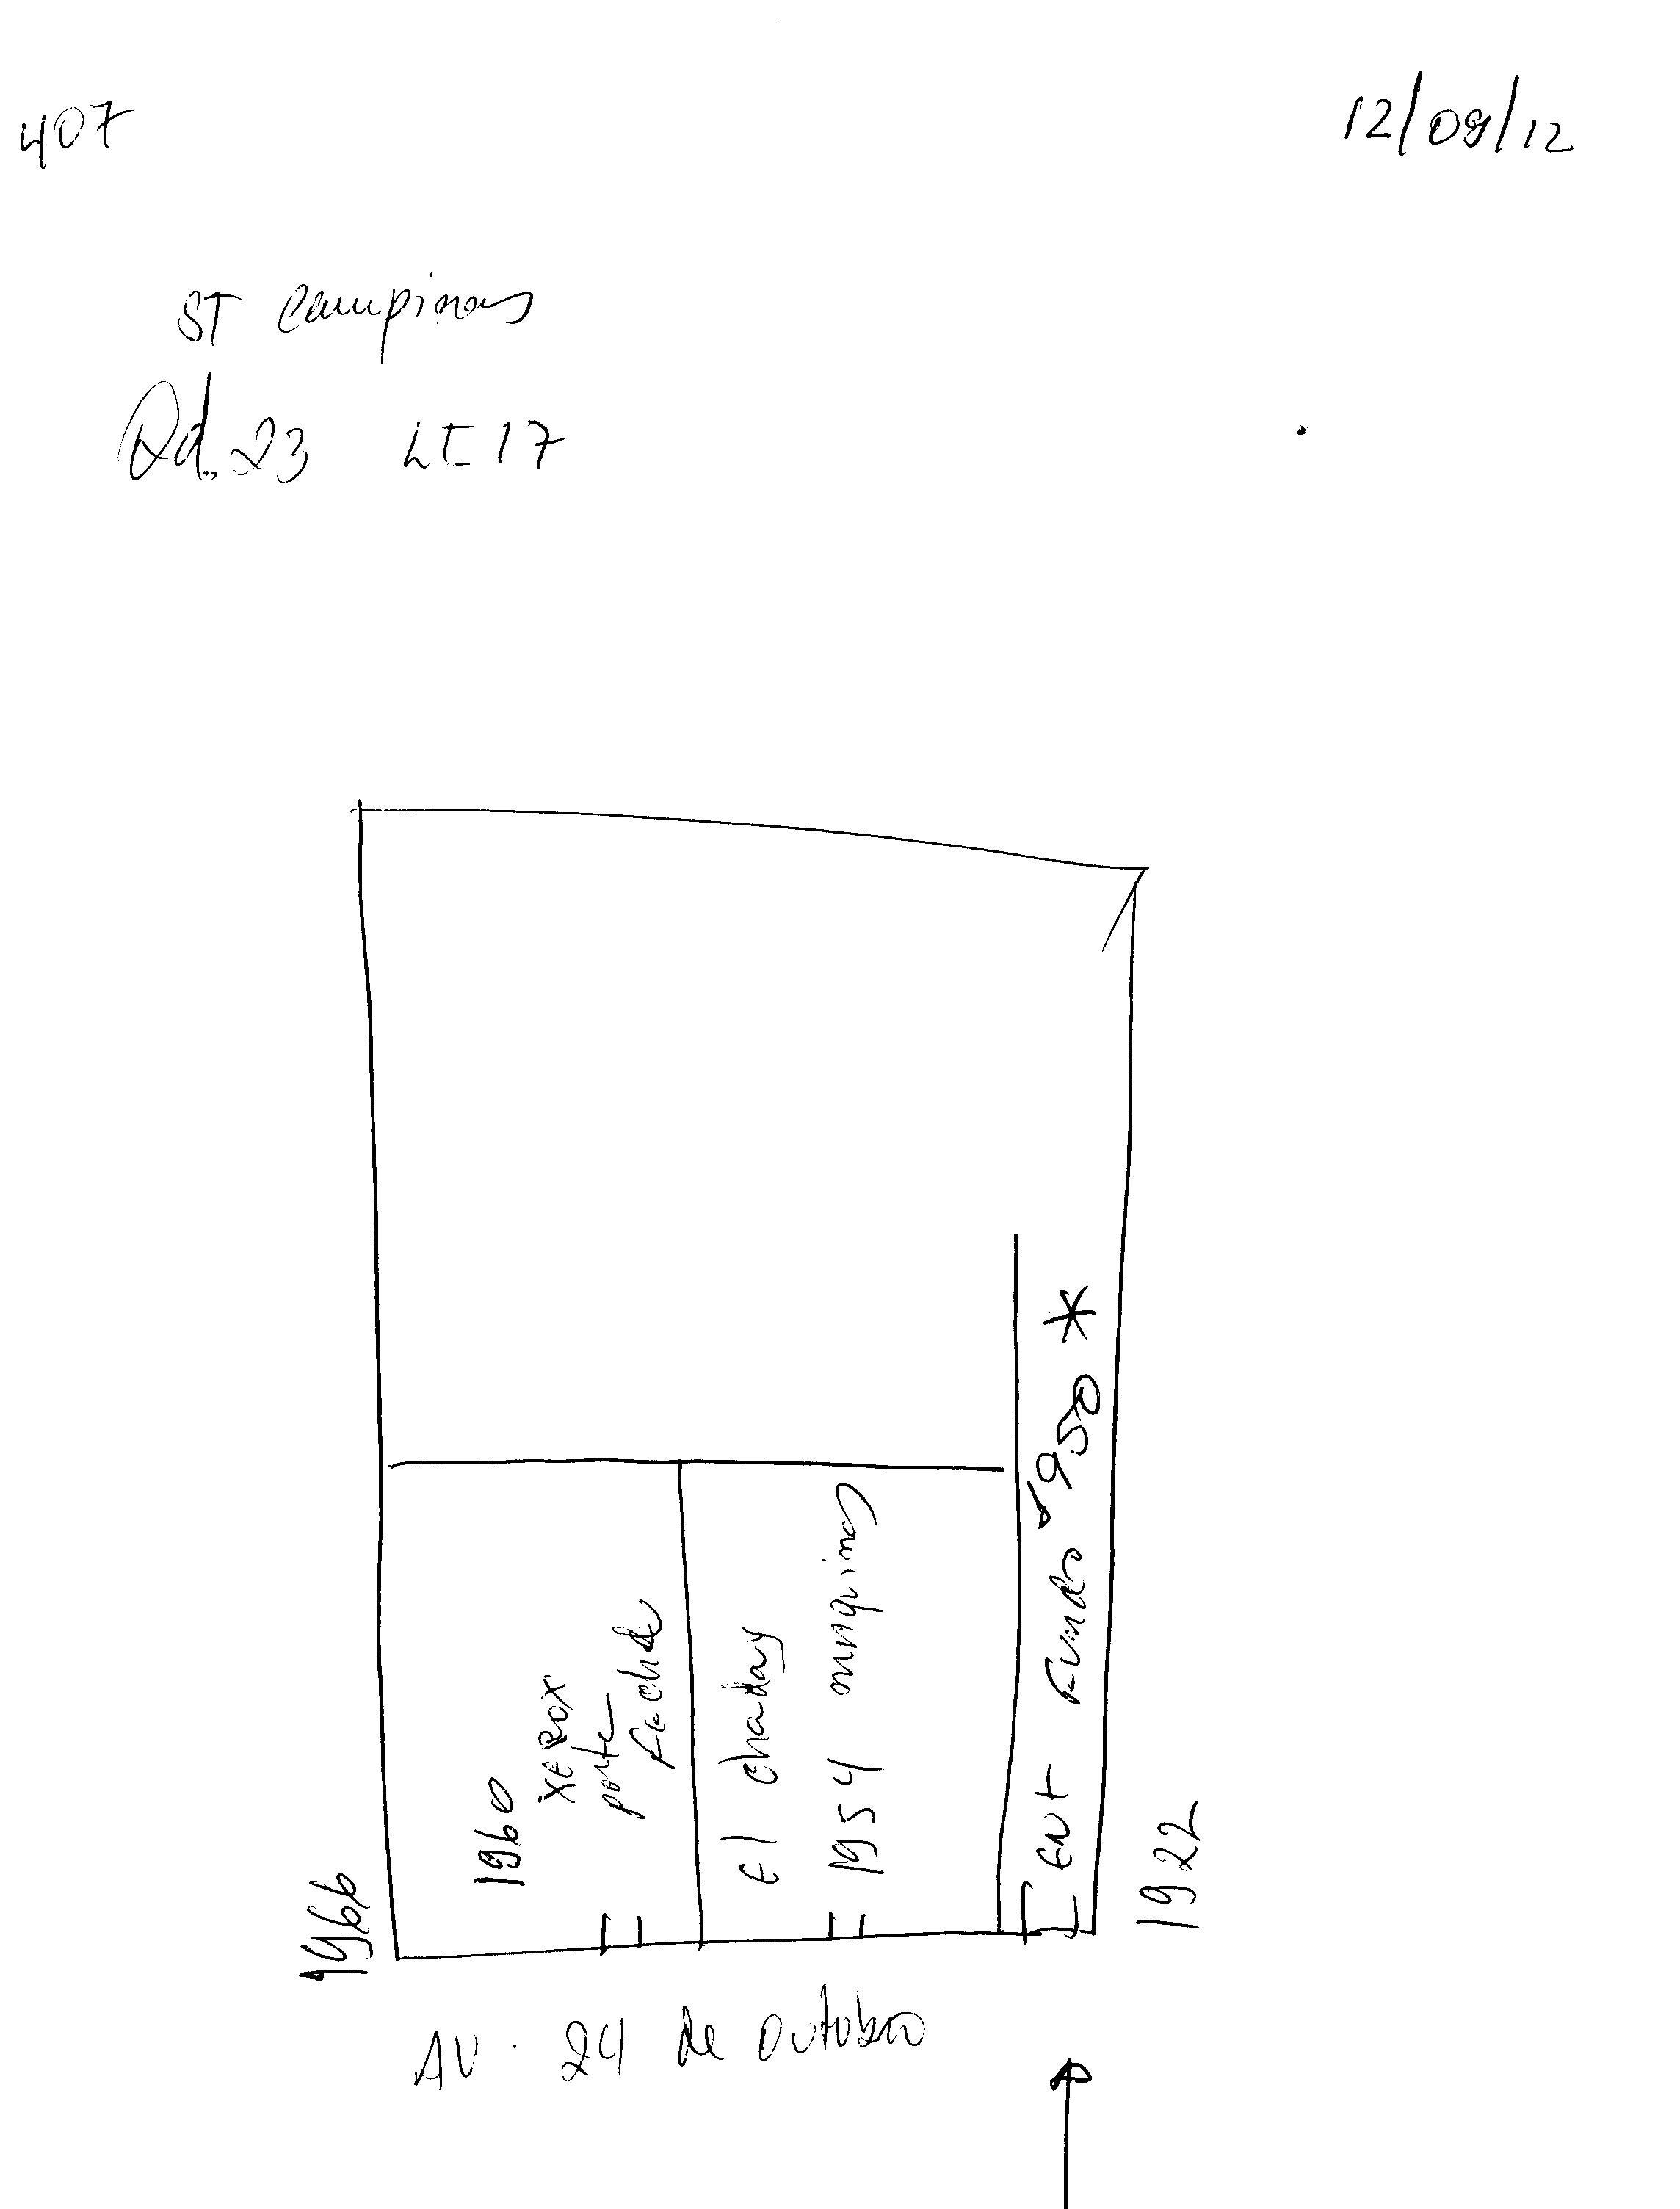 407
12/09/12
ST Campinas
Qd. 23 Lt 17
1966
1960
XEROX
porta
fechada
El chaday
1954 maquinas
ENT Fundo 1950 *
1922
AV. 24 de outubro